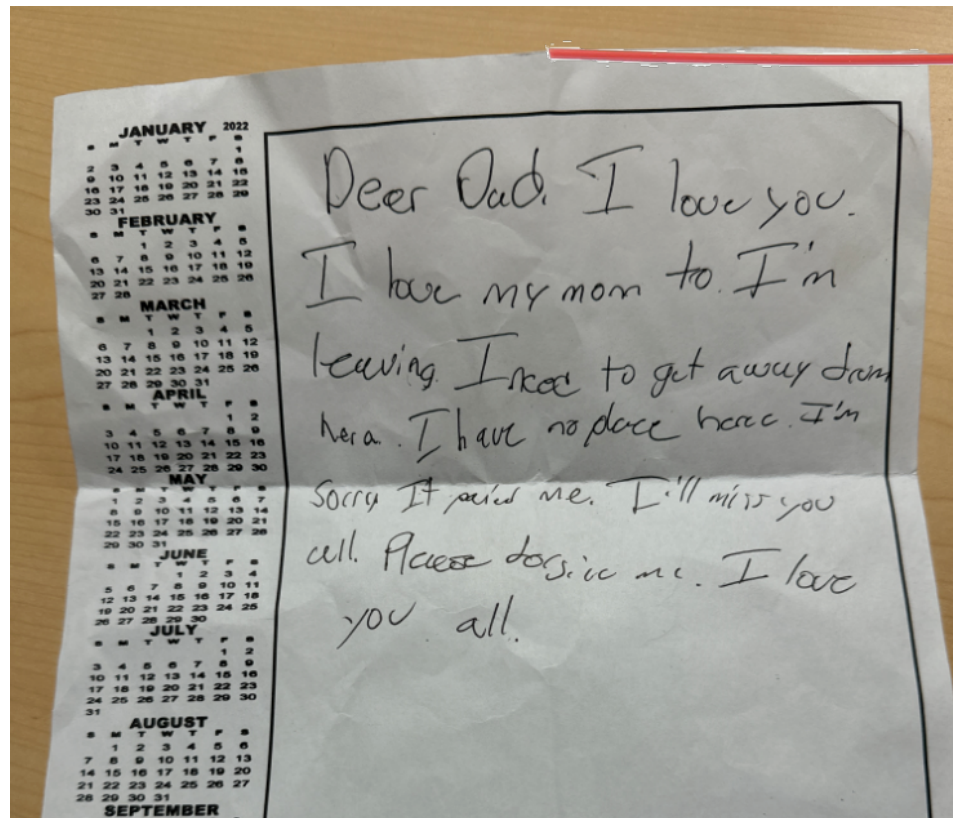 JANUARY 2022
S M T W T F S
1
2 3 4 5 6 7 8
9 10 11 12 13 14 15
16 17 18 19 20 21 22
23 24 25 26 27 28 29
30 31
FEBRUARY
S M T W T F S
1 2 3 4 5
6 7 8 9 10 11 12
13 14 15 16 17 18 19
20 21 22 23 24 25 26
27 28
MARCH
S M T W T F S
1 2 3 4 5
6 7 8 9 10 11 12
13 14 15 16 17 18 19
20 21 22 23 24 25 26
27 28 29 30 31
APRIL
S M T W T F S
1 2
3 4 5 6 7 8 9
10 11 12 13 14 15 16
17 18 19 20 21 22 23
24 25 26 27 28 29 30
MAY
S M T W T F S
1 2 3 4 5 6 7
8 9 10 11 12 13 14
15 16 17 18 19 20 21
22 23 24 25 26 27 28
29 30 31
JUNE
S M T W T F S
1 2 3 4
5 6 7 8 9 10 11
12 13 14 15 16 17 18
19 20 21 22 23 24 25
26 27 28 29 30
JULY
S M T W T F S
1 2
3 4 5 6 7 8 9
10 11 12 13 14 15 16
17 18 19 20 21 22 23
24 25 26 27 28 29 30
31
AUGUST
S M T W T F S
1 2 3 4 5 6
7 8 9 10 11 12 13
14 15 16 17 18 19 20
21 22 23 24 25 26 27
28 29 30 31
SEPTEMBER
Dear Dad. I love you.
I love my mom to. I'm
leaving. I need to get away from
hera. I have no place here. I'm
sorry It me. I'll miss you
all. Please forgive me. I love
you all.